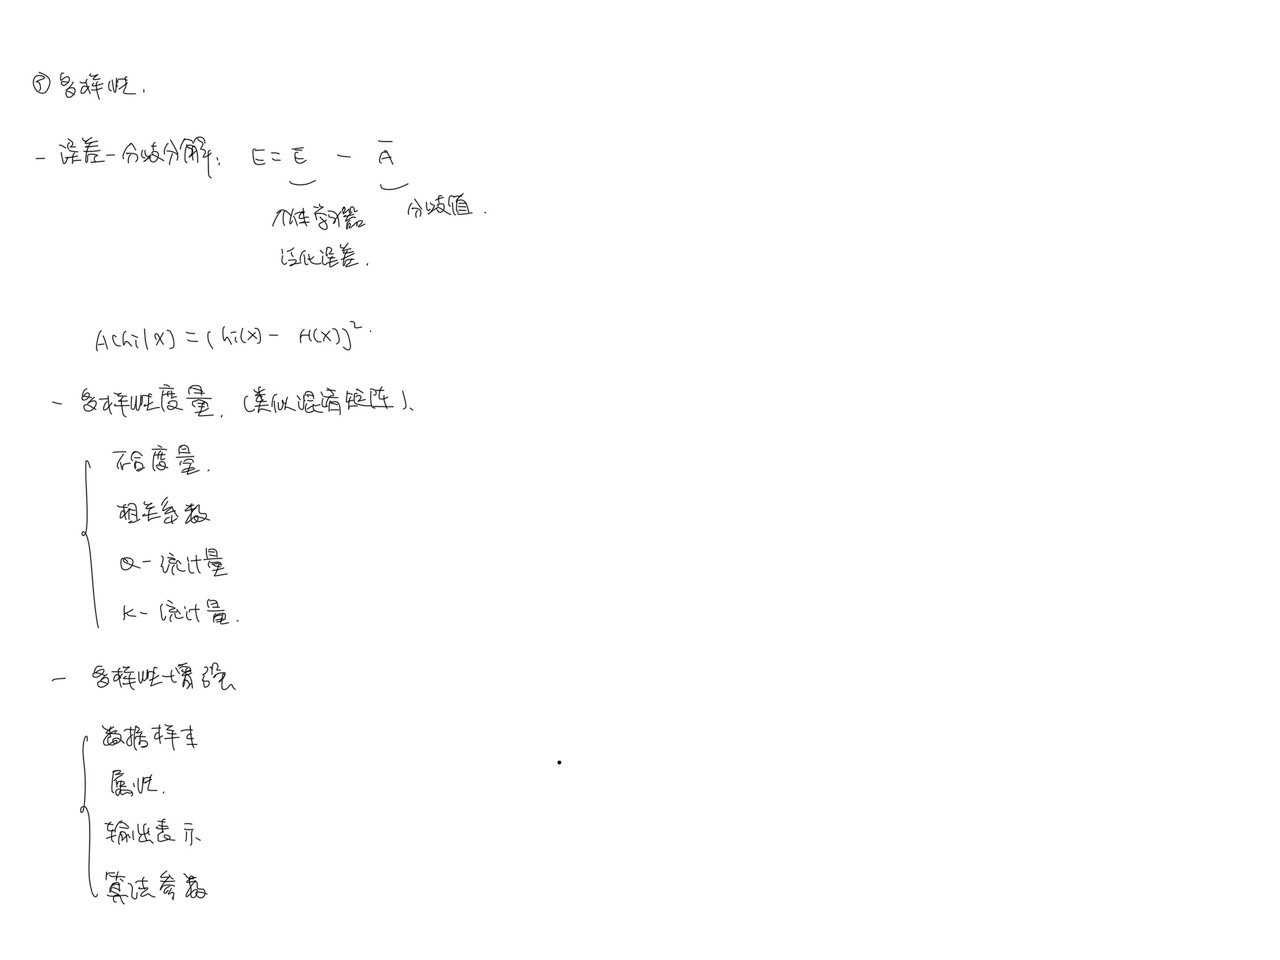 ⑤ 多样性.
- 误差-分歧分解: E = Ē - Ā
个体学习器 分歧值.
泛化误差.
A(hi|x) = (hi(x) - H(x))².
- 多样性度量. (类似混淆矩阵)、
不合度量.
相关系数
Q-统计量
K-统计量.
- 多样性增强
数据样本
属性.
输出表示
算法参数